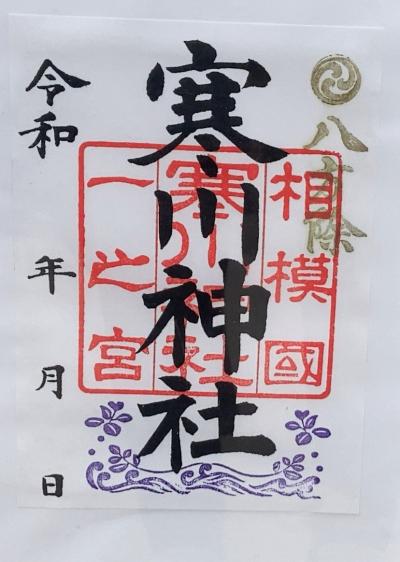 八方除
相模國
寒川神社
一之宮
寒川神社
令和 年 月 日